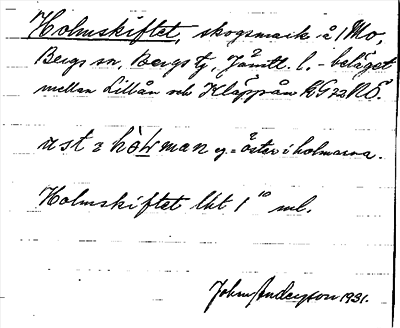 Holmskiftet, skogsmark å 1 Mo,
Bergs sn, Bergs tg, Jämtl. l. – beläget
mellan Lillån och Kläppån RG 22 NÖ.
ust i hò man y = öster i holmarna.
Holmskiftet lht 1¹⁰ ml.
John Anderson 1931.